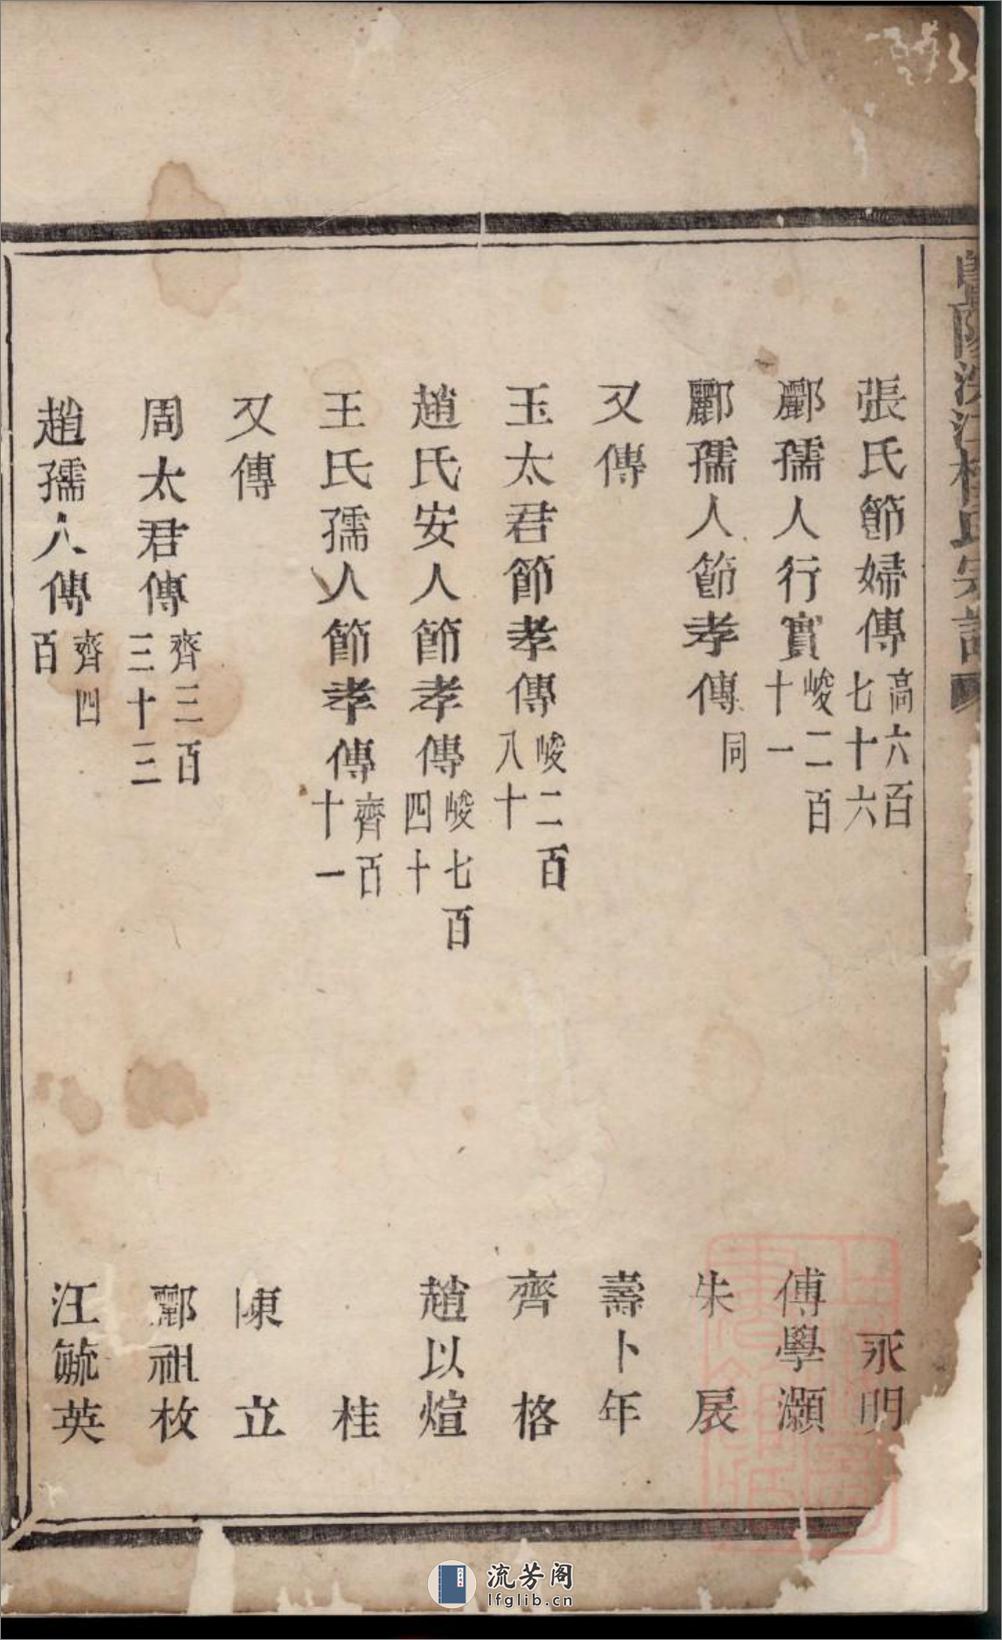 張氏節婦傳 高六百七十六 永明
酈孺人行實 峻二百十一 傅學灝
酈孺人節孝傳 同 朱 扆
又傳 壽卜年
王太君節孝傳 峻二百八十 齊 格
趙氏安人節孝傳 峻七百四十 趙以煊
王氏孺人節孝傳 齊百十一 桂
又傳 陳 立
周太君傳 齊三百三十三 酈祖枚
趙孺人傳 齊四百 汪毓英
流芳阁
lfglib.cn